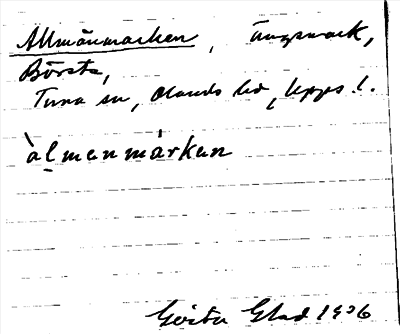 Allmänmarken, ängsmark,
Börsta,
Tuna sn, Olands hd, Upps. l.
àlmanmárkan
Gösta Glad 1936